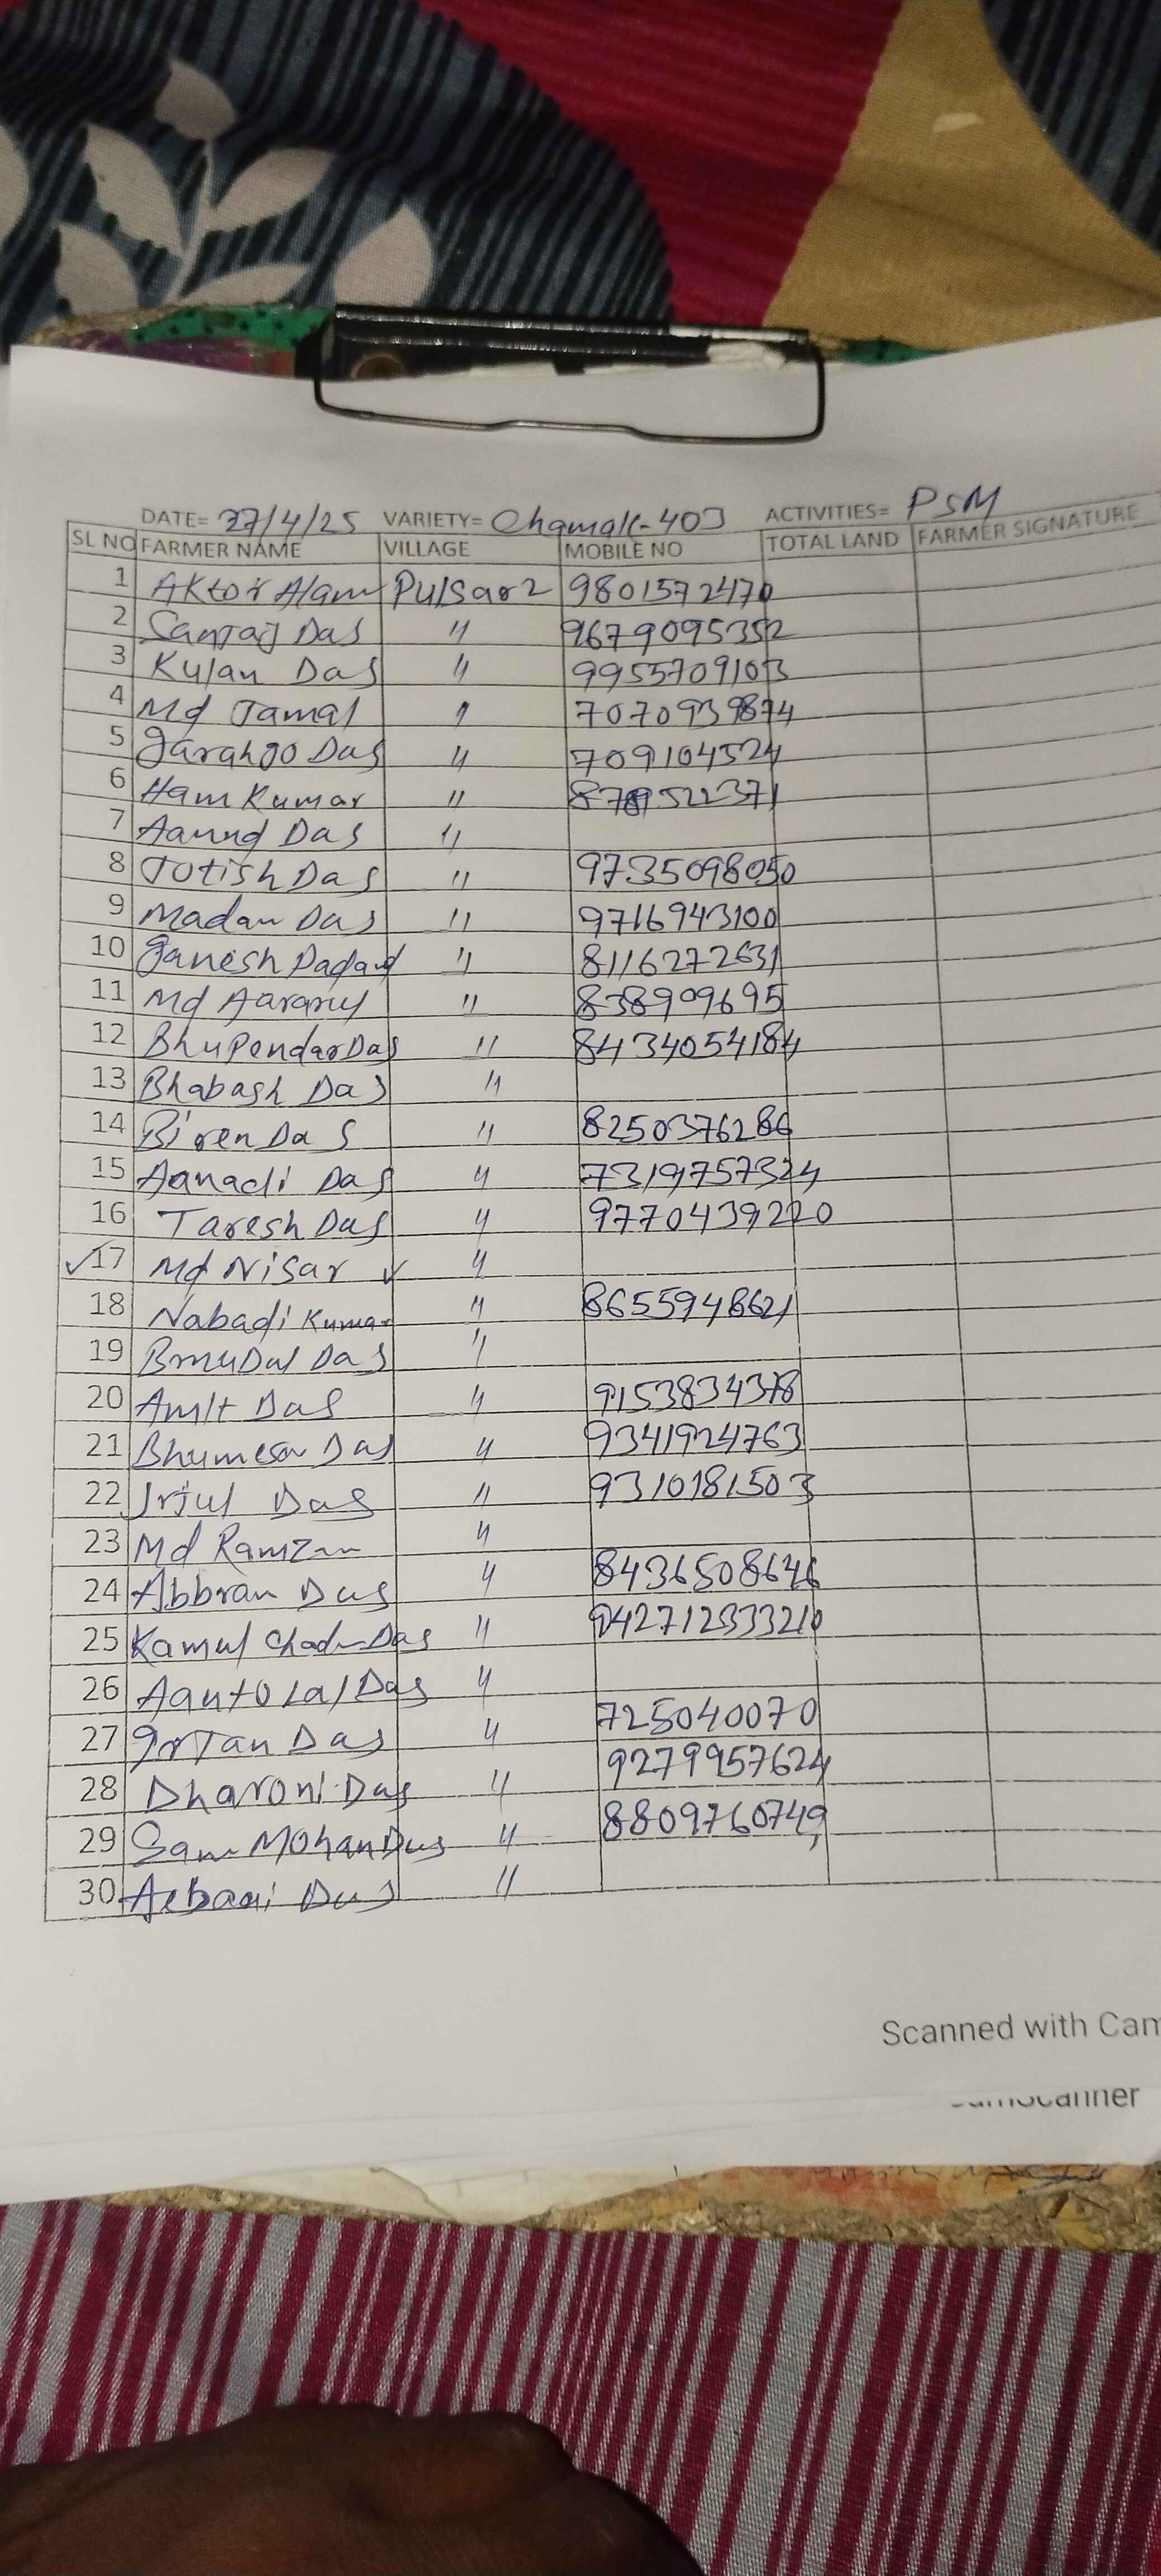 DATE= 27/4/25 VARIETY= Chamak-403 ACTIVITIES= PSM
SL NO FARMER NAME VILLAGE MOBILE NO TOTAL LAND FARMER SIGNATURE
1 Aktor Alam Pulsar2 9801572470
2 Das " 9679095352
3 Kulan Das " 9955709103
4 Md Jamal " 7070939874
5 Das " 709104524
6 Ham Kumar " 522371
7 Das "
8 Jotish Das " 9735098050
9 Madan Das " 9716943100
10 Ganesh " 8116272631
11 Md " 838909695
12 Bhupendar Das " 8434054184
13 Bhabash Das "
14 Biren Das " 8250376286
15 Aanadi Das " 7319757324
16 Taresh Das " 9770439220
17 Md Nisar "
18 Nabadi Kumar " 8655948621
19 Das "
20 Amit Das " 9153834378
21 Bhumesar Das " 9341924763
22 Das " 9310181503
23 Md Ramzan "
24 Abbran Das " 8436508646
25 Kamul Das " 942712333210
26 Aanto Lal Das "
27 Das " 725040070
28 Dharoni Das " 9279957624
29 Sam Mohan Das " 8809760749
30 Das "
Scanned with Cam